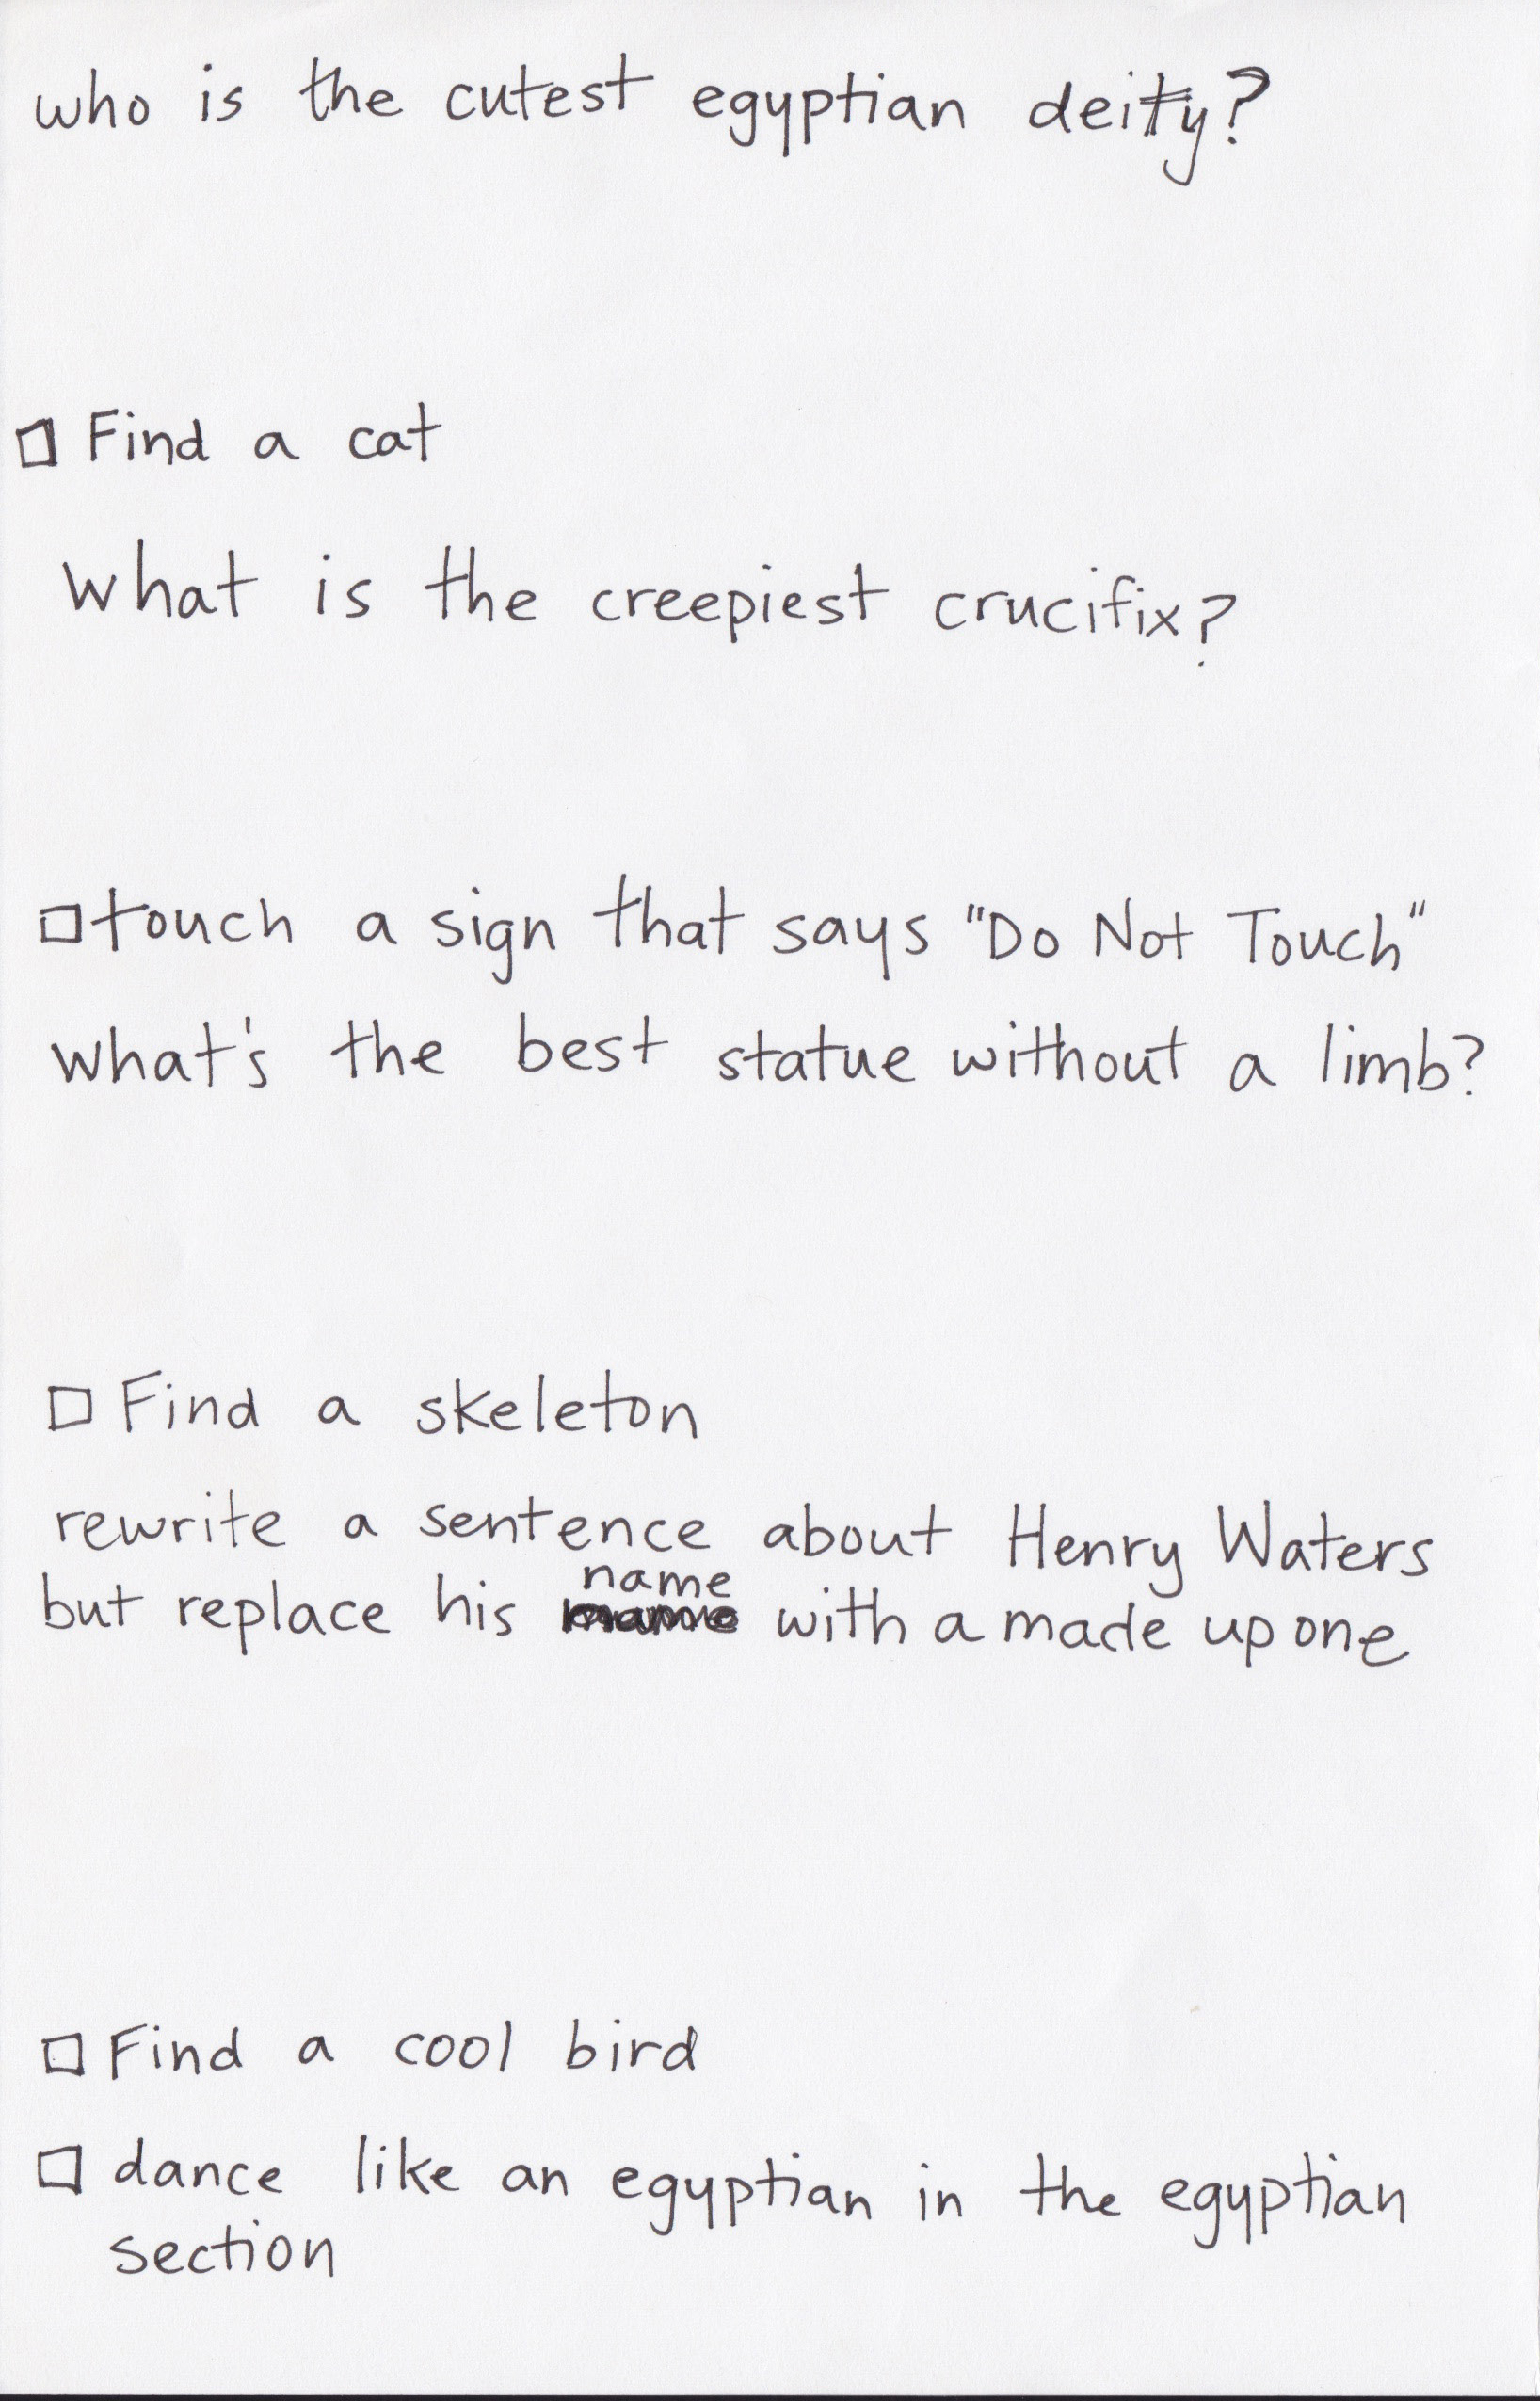 who is the cutest egyptian deity?
☐ Find a cat
What is the creepiest crucifix?
☐ touch a sign that says "Do Not Touch"
What's the best statue without a limb?
☐ Find a skeleton
rewrite a sentence about Henry Waters
name
but replace his with a made up one
☐ Find a cool bird
☐ dance like an egyptian in the egyptian
section